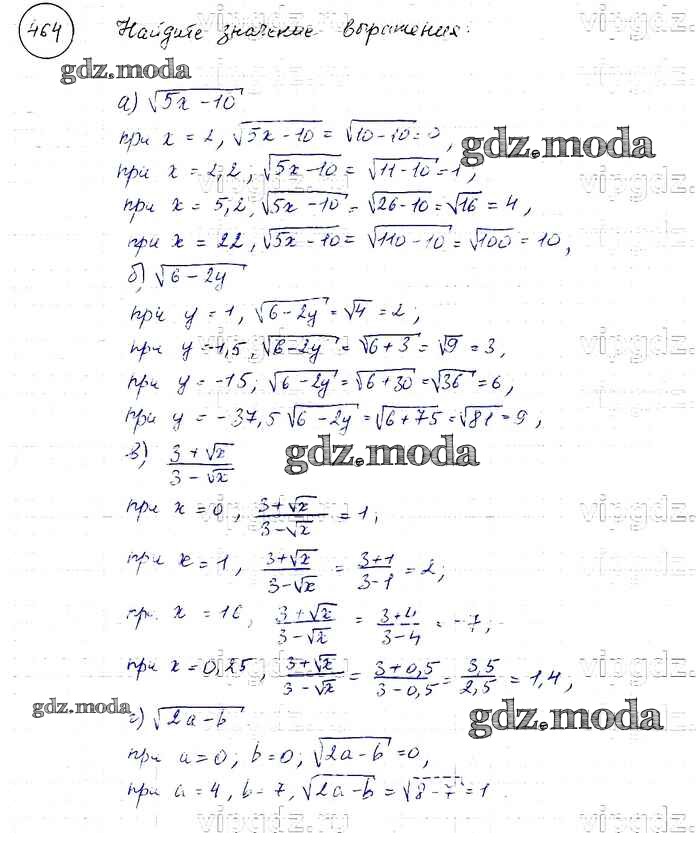 464 Найдите значение выражения:
gdz.moda
а) √5x-10
при x = 2, √5x-10 = √10-10 = 0,
gdz.moda
при x = 2,2, √5x-10 = √11-10 = 1,
при x = 5,2, √5x-10 = √26-10 = √16 = 4,
при x = 22, √5x-10 = √110-10 = √100 = 10,
б) √6-2y
при y = 1, √6-2y = √4 = 2;
при y = -1,5, √6-2y = √6+3 = √9 = 3,
при y = -15, √6-2y = √6+30 = √36 = 6,
при y = -37,5 √6-2y = √6+75 = √81 = 9,
в) (3+√x)/(3-√x)
gdz.moda
при x = 0, (3+√x)/(3-√x) = 1;
при x = 1, (3+√x)/(3-√x) = (3+1)/(3-1) = 2;
при x = 16, (3+√x)/(3-√x) = (3+4)/(3-4) = -7;
при x = 0,25, (3+√x)/(3-√x) = (3+0,5)/(3-0,5) = 3,5/2,5 = 1,4,
gdz.moda
г) √2a-b
gdz.moda
при a = 0, b = 0, √2a-b = 0,
при a = 4, b = 7, √2a-b = √8-7 = 1
vipgdz.ru